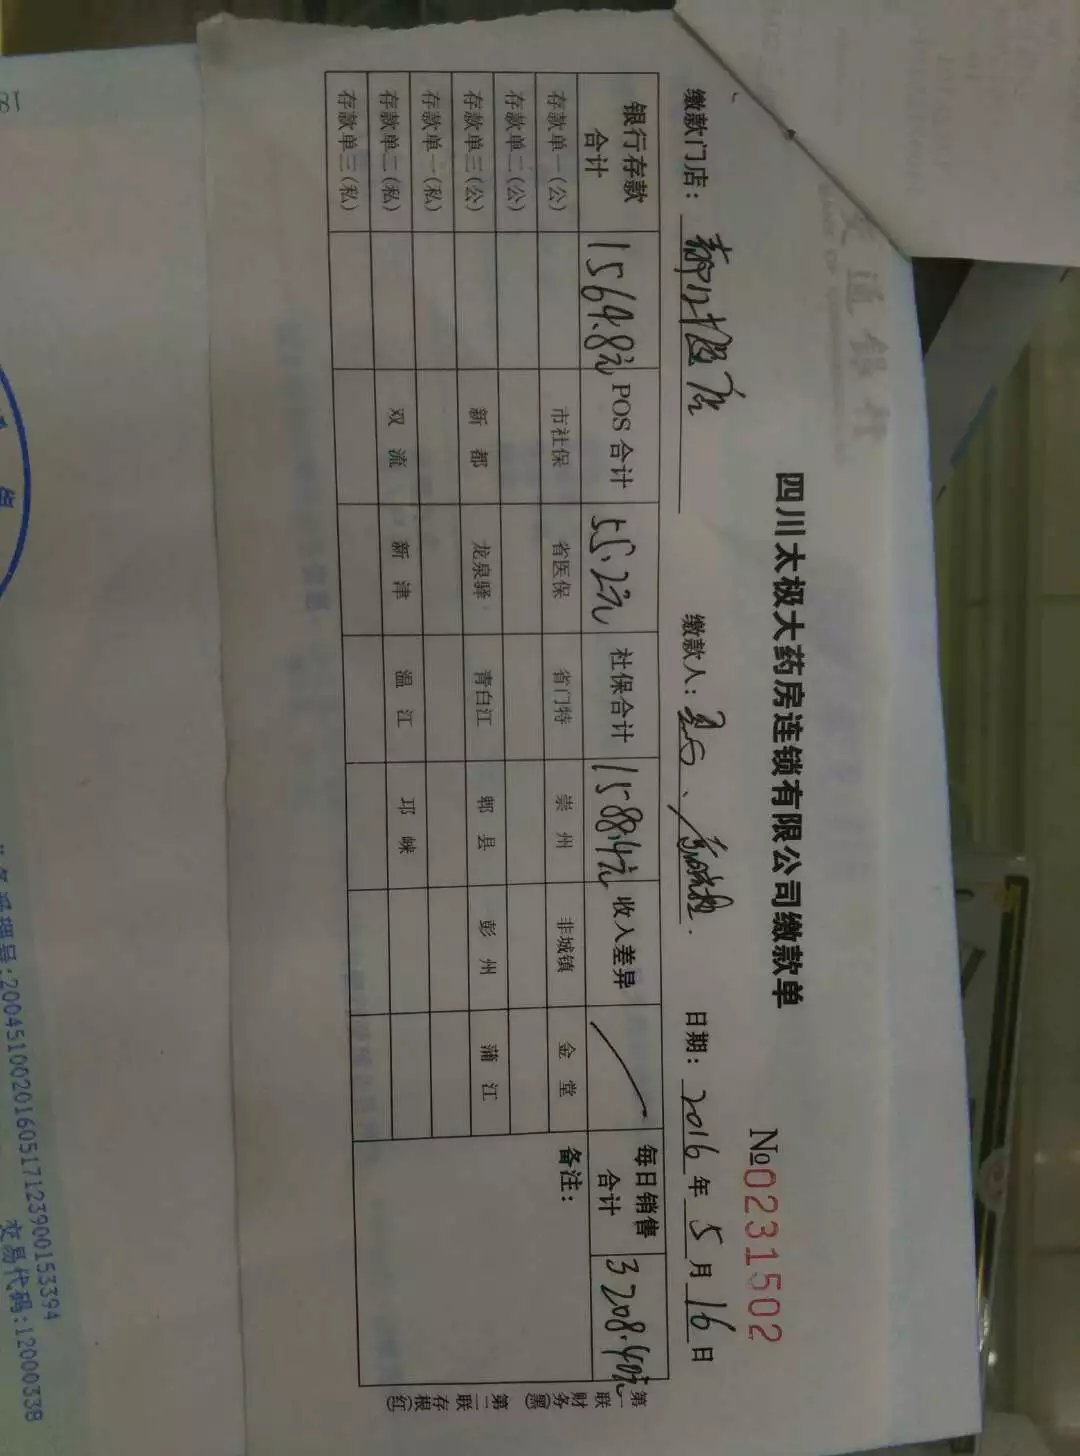 四川太极大药房连锁有限公司缴款单
№0231502
缴款门店： 缴款人： 日期：2016年5月16日
银行存款合计 1564.8元 POS合计 55.2元 社保合计 1588.4元 收入差异 / 每日销售合计 3208.40元
存款单一(公) 市社保 省医保 省门特 崇州 非城镇 金堂 备注：
存款单二(公)
存款单三(公) 新都 龙泉驿 青白江 郫县 彭州 蒲江
存款单一(私)
存款单二(私) 双流 新津 温江 邛崃
存款单三(私)
第一联财务(黑) 第二联存根(红)
理号:2004510020160517123900153394
交易代码:12000338